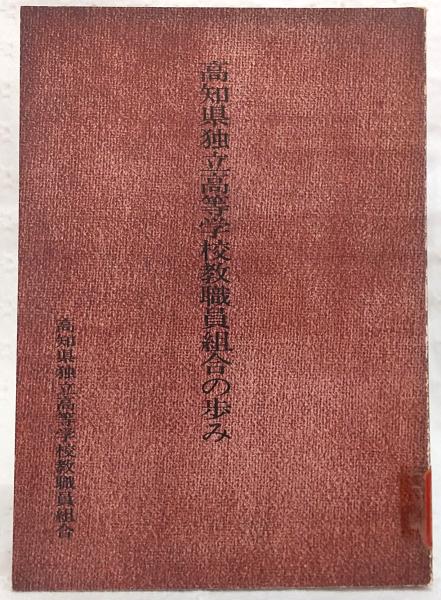 高知県独立高等学校教職員組合の歩み
高知県独立高等学校教職員組合